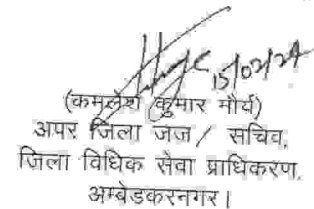 15/02/24
(कमलेश कुमार मौर्य)
अपर जिला जज / सचिव,
जिला विधिक सेवा प्राधिकरण,
अम्बेडकरनगर।